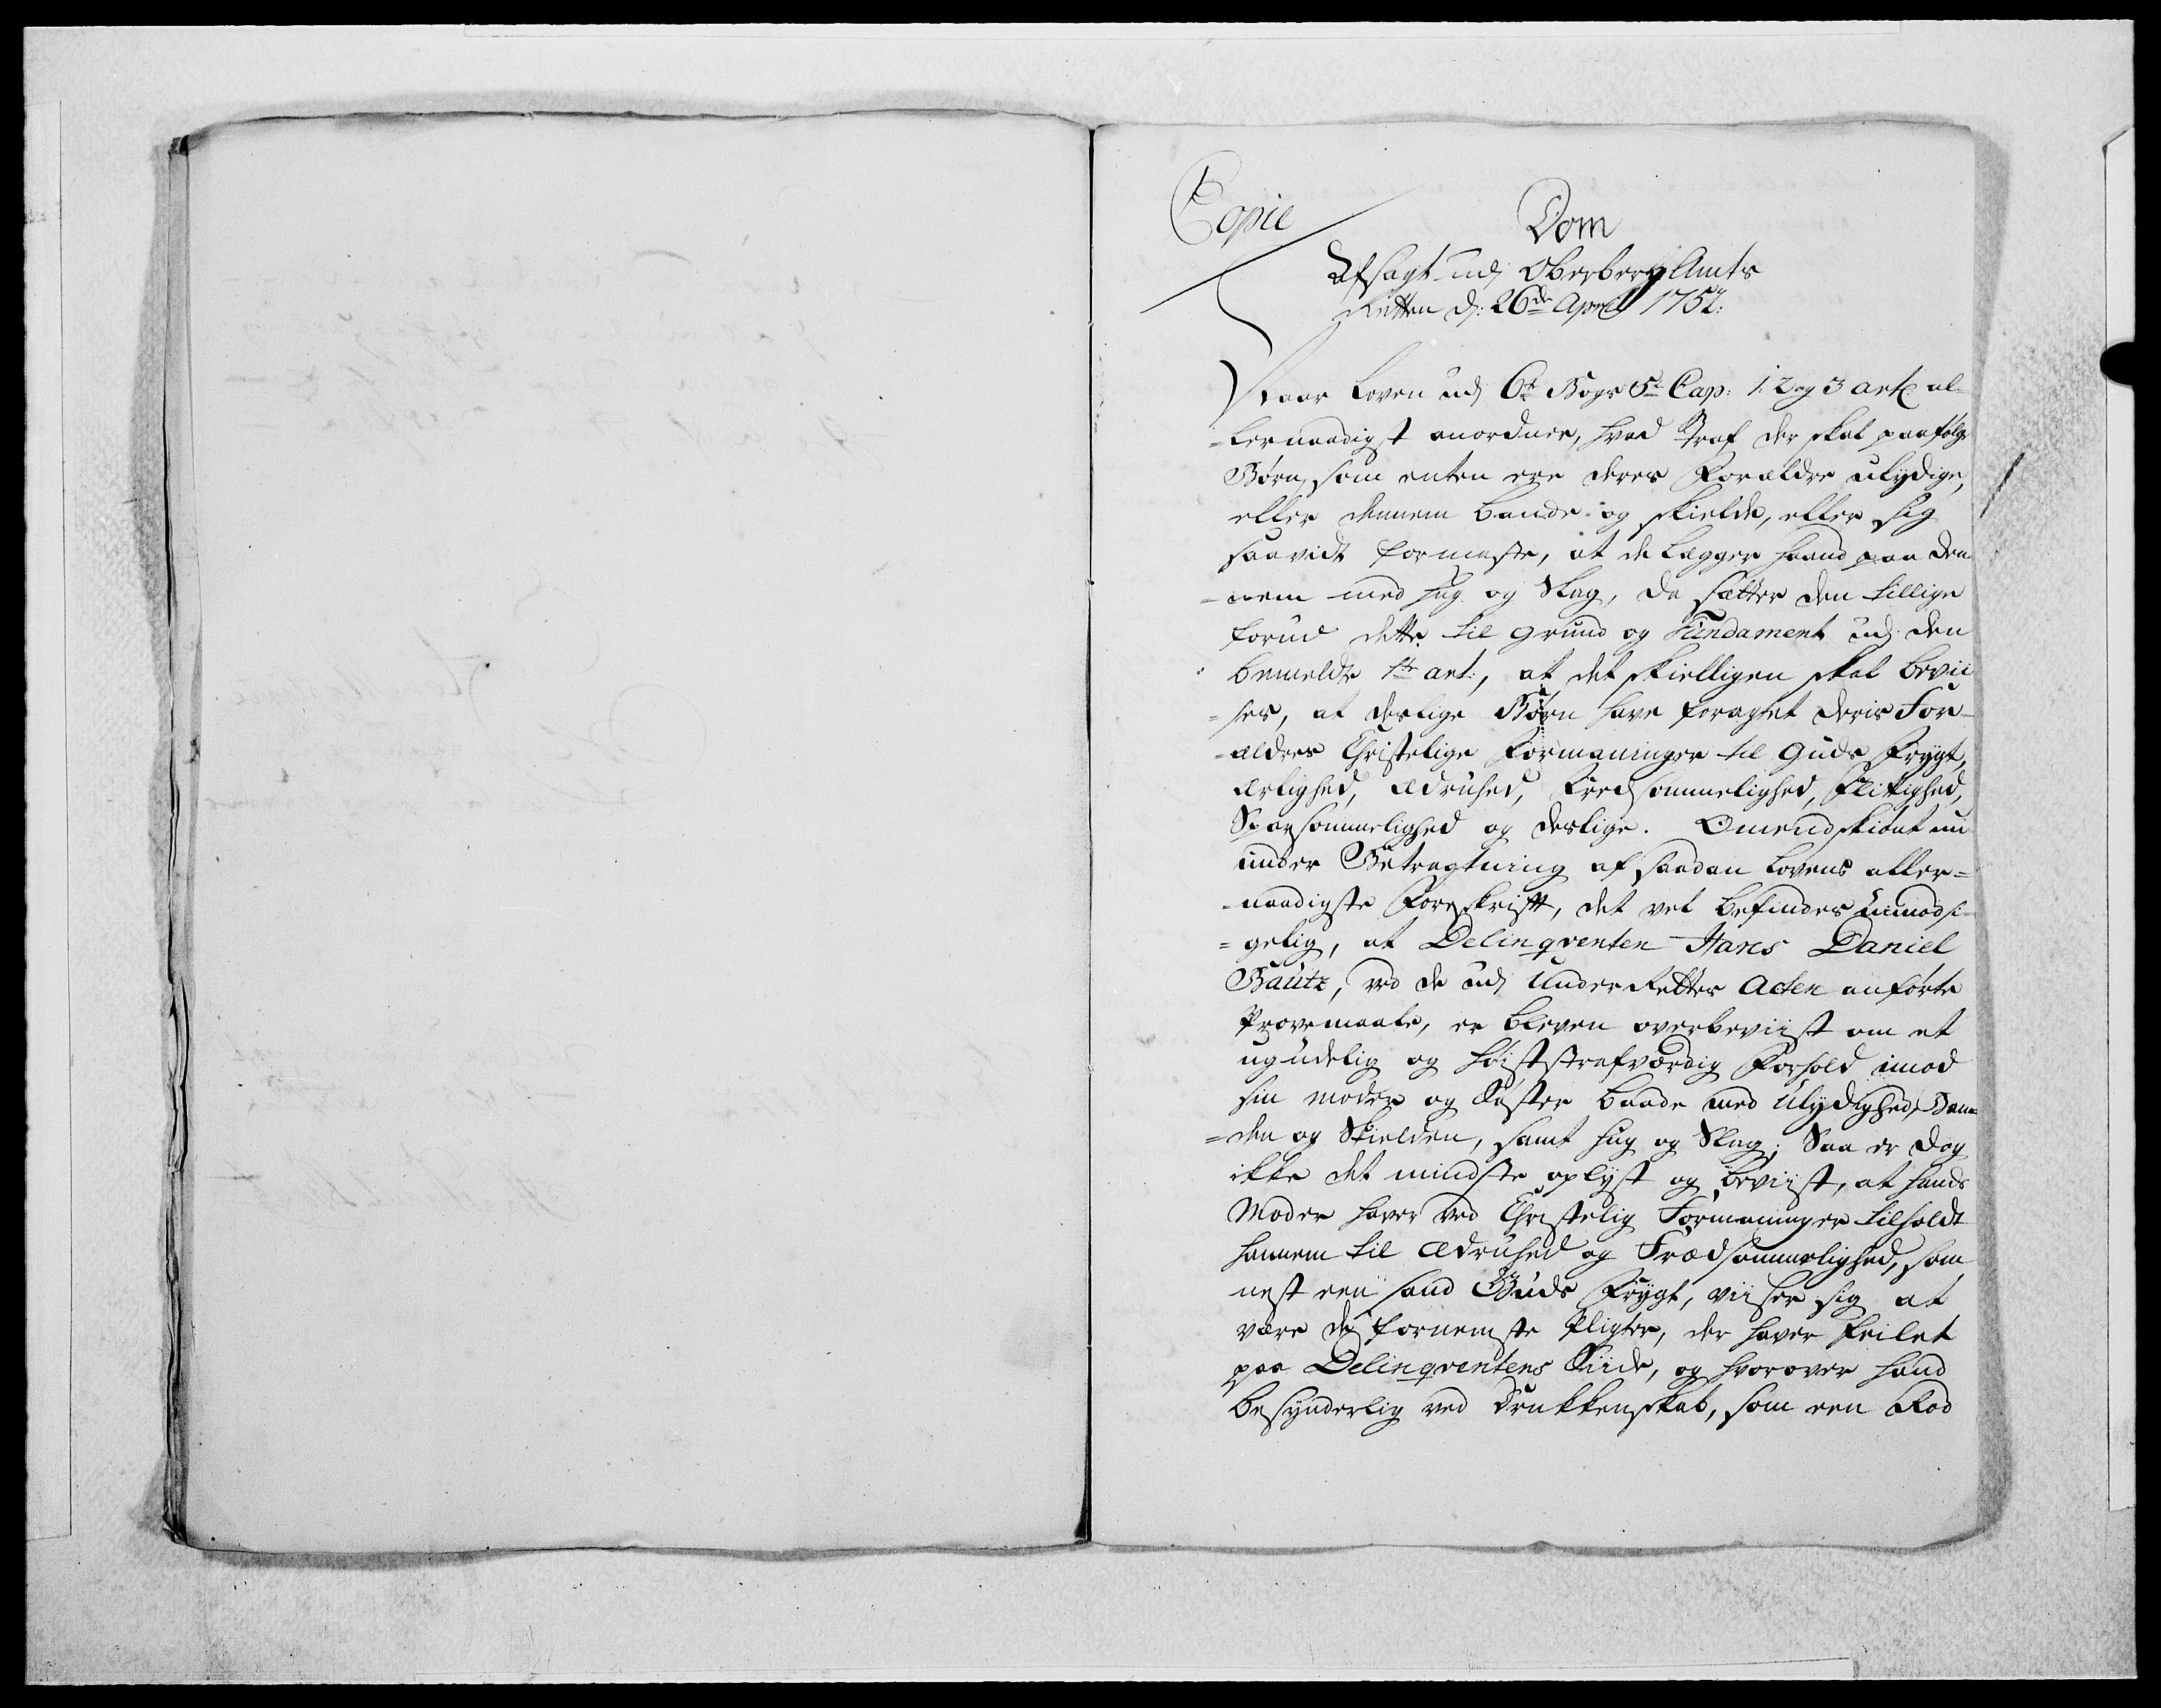 Copie
Dom
Afsagt udj OberbergAmts
Retten d: 26de April 1752:
Naar Loven udj 6te Bogs 5te Cap: 1. 2 og 3 art: al-
=lernaadigst anordner, hvad Straf der skal paafølge
Børn, som enten ere deres Forældre ulydige,
eller dennem bande og skielde, eller sig
saavidt formaste, at de lægger haand paa den-
=nem med hug og Slag, da sætter den tillige
forud dette til grund og Fundament udj den
bemeldte 1te art:, at det skielligen skal bevii
=ses, at deslige Børn have foragtet deris For-
=ældres Christelige Formaninger til Guds Frygt,
ærlighed, ædruhed, Fredsommelighed, Flittighed,
Sparsommelighed og deslige. Omendskiønt nu
under Betragtning af saadan Lovens aller=
=naadigste Forskrift, det vel befindes uimodsi-
=gelig, at Delinqventen Hans Daniel
Bautz, ved de udj UnderRettes Acten anførte
Prøvemaale, er bleven overbeviist om et
ugudelig og høiststrafværdig Forhold imod
sin moder og Søster baade med Ulydighed, Ban=
=den og Skielden, samt hug og Slag; Saa er dog
ikke det mindste oplyst og beviist, at hands
Moder haver ved Christelig Formaninger tilholdt
hannem til ædruhed og Frædsommelighed, som
nest een sand Guds Frygt, viiser sig at
være de fornemste Pligter, der haver feilet
paa Delinqventens Siide, og hvorover hand
besynderlig ved Drukkenskab, som een Rod